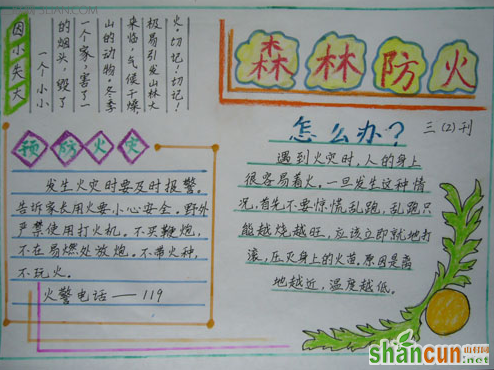 因小失大
一个小小
的烟头，毁了
一个家，害了一
山的动物。冬季
来临，气候干燥
极易引发山林大
火。切记！切记！
森林防火
三(2)刊
预防火灾
发生火灾时要及时报警。
告诉家长用火要小心安全。野外
严禁使用打火机。不买鞭炮，
不在易燃处放炮。不带火种，
不玩火。
火警电话——119
怎么办？
遇到火灾时，人的身上
很容易着火。一旦发生这种情
况，首先不要惊慌乱跑，乱跑只
能越烧越旺，应该立即就地打
滚，压灭身上的火苗，原因是离
地越近，温度越低。
shancun
山村网
.net